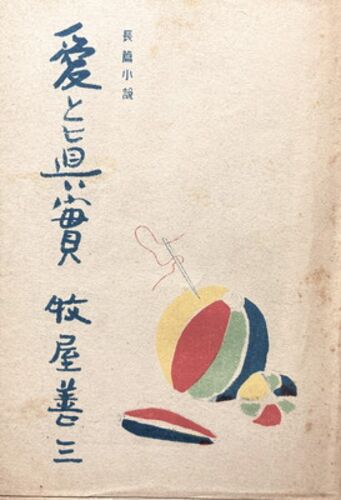 長篇小說
愛と眞實
牧屋善三